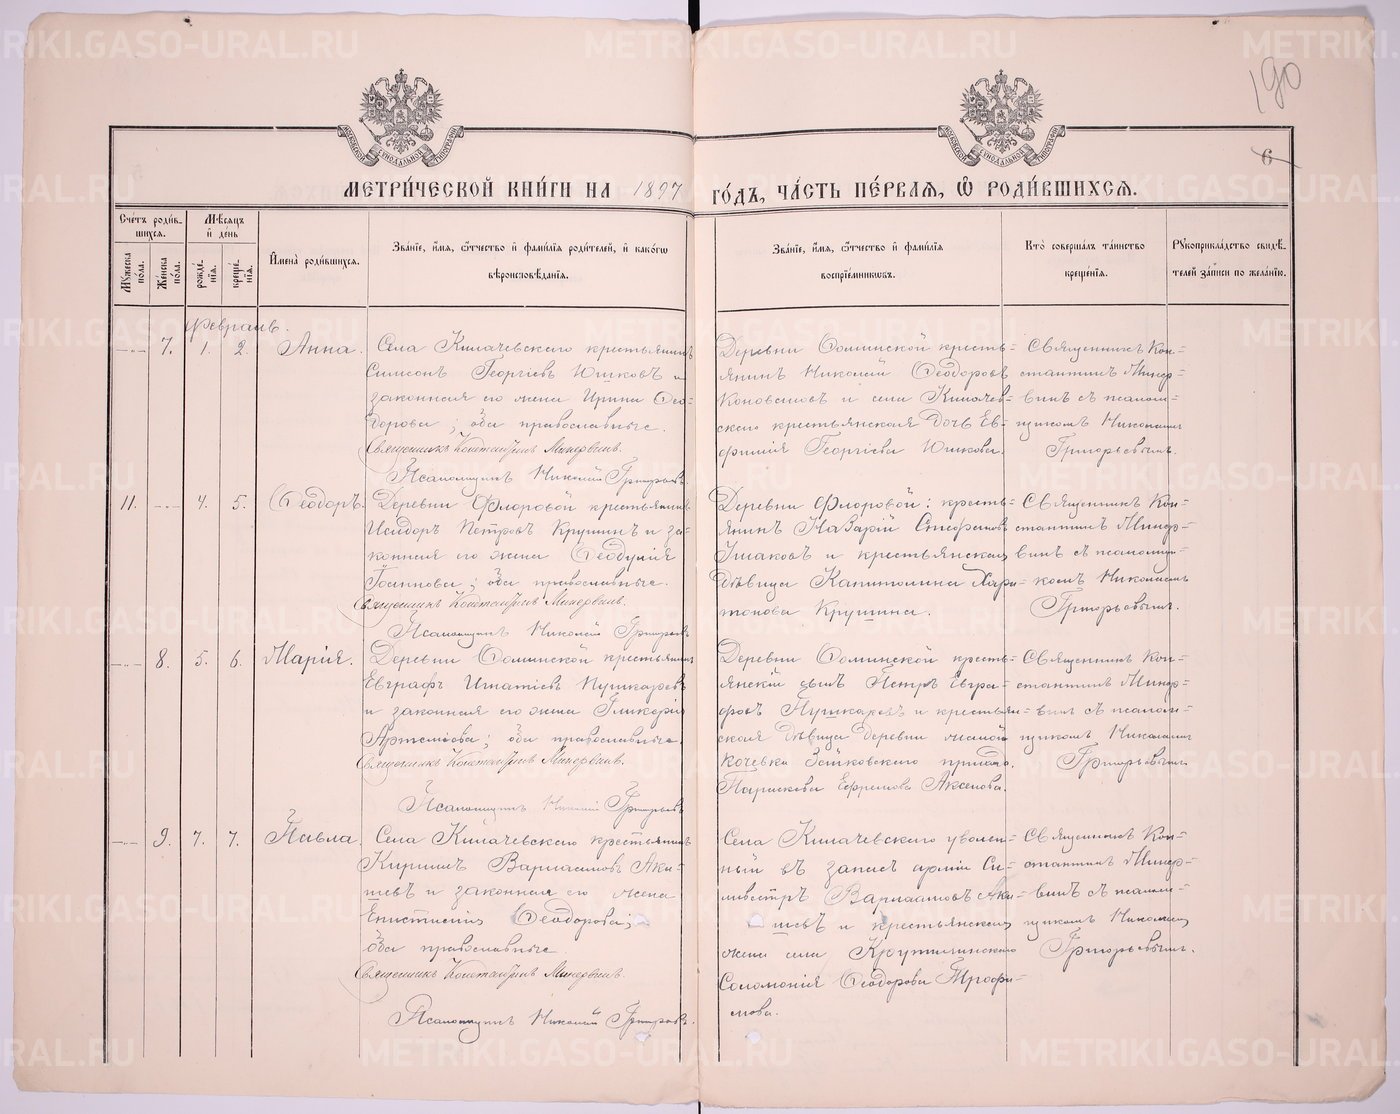 190
6
МЕТРИЧЕСКОЙ КНИГИ НА 1897 ГОДЪ, ЧАСТЬ ПЕРВАЯ, Ѽ РОДИВШИХСЯ.
Счетъ родив-
шихся.
Мѣсяцъ
и день
Мужеска
пола.
Женска
пола.
рожде-
нія.
креще-
нія.
Имена родившихся.
Званіе, имя, ѿтчество и фамилія родителей, и какогѡ
вѣроисповѣданія.
Званіе, имя, ѿтчество и фамилія
воспріемникѡвъ.
Кто совершалъ таинство
крещенія.
Рукоприкладство свидѣ-
телей записи по желанію.
Февраль.
7. 1. 2. Анна.
Села Килачевскаго крестьянинъ
Симеонъ Георгіевъ Юшковъ и
законная его жена Ирина Ѳео-
дорова; оба православные.
Священникъ Константинъ Минервинъ.
Псаломщикъ Николай Григорьевъ.
Деревни Ѳоминской кресть-
янинъ Николай Ѳеодоровъ
Коноваловъ и села Килачев-
скаго крестьянская дочь Ев-
фимія Георгіева Юшкова.
Священникъ Кон-
стантинъ Минер-
винъ съ псалом-
щикомъ Николаемъ
Григорьевымъ.
11. 4. 5. Ѳеодоръ.
Деревни Флоровой крестьянинъ
Исидоръ Петровъ Крушинъ и за-
конная его жена Ѳеодулія
Іоаннова; оба православные.
Священникъ Константинъ Минервинъ.
Псаломщикъ Николай Григорьевъ
Деревни Флоровой: кресть-
янинъ Назарій Стефановъ
Ушаковъ и крестьянская
дѣвица Капитолина Хари-
тонова Крушина.
Священникъ Кон-
стантинъ Минер-
винъ съ псаломщи-
комъ Николаемъ
Григорьевымъ.
8. 5. 6. Марія.
Деревни Ѳоминской крестьянинъ
Евграфъ Игнатіевъ Пушкаревъ
и законная его жена Гликерія
Артемьева; оба православные.
Священникъ Константинъ Минервинъ.
Псаломщикъ Николай Григорьевъ
Деревни Ѳоминской кресть-
янскій сынъ Петръ Евгра-
фовъ Пушкаревъ и крестьян-
ская дѣвица деревни малой
Кочевки Зайковскаго прихода
Параскева Ефремова Аксенова.
Священникъ Кон-
стантинъ Минер-
винъ съ псалом-
щикомъ Николаемъ
Григорьевымъ
9. 7. 7. Павла.
Села Килачевскаго крестьянинъ
Кириллъ Варлаамовъ Аки-
шевъ и законная его жена
Ѳеодорова;
оба православные
Священникъ Константинъ Минервинъ.
Псаломщикъ Николай Григорьевъ.
Села Килачевскаго уволен-
ный въ запасъ арміи Си-
львестръ Варлаамовъ Аки-
шевъ и крестьянская
жена села Крутихинскаго
Соломонія Ѳеодорова Трофи-
мова.
Священникъ Кон-
стантинъ Минер-
винъ съ псалом-
щикомъ Николаемъ
Григорьевымъ.
METRIKI.GASO-URAL.RU